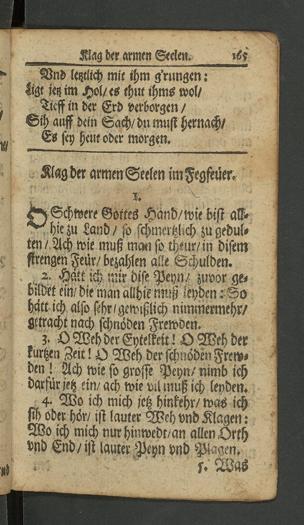 Klag der armen Seelen. 165
Vnd letzlich mit ihm g'rungen:
Ligt jetz im Hol/ es thut ihms wol/
Tieff in der Erd verborgen/
Sih auff dein Sach/ du must hernach/
Es sey heut oder morgen.
Klag der armen Seelen im Fegfeüer.
1.
O Schwere Gottes Hand/ wie bist all-
hie zu Land/ so schmertzlich zu gedul-
ten/ Ach wie muß man so theur/ in disem
strengen Feür/ bezahlen alle Schulden.
2. Hätt ich mir dise Peyn/ zuvor ge-
bildet ein/ die man allhie muß leyden: So
hätt ich also sehr/ gewißlich nimmermehr/
getracht nach schnöden Frewden.
3. O Weh der Eytelkeit! O Weh der
kurtzen Zeit! O Weh der schnöden Frew-
den! Ach wie so grosse Peyn/ nimb ich
darfür jetz ein/ ach wie vil muß ich leyden.
4. Wo ich mich jetz hinkehr/ was ich
sih oder hör/ ist lauter Weh vnd Klagen:
Wo ich mich nur hinwend/ an allen Orth
vnd End/ ist lauter Peyn vnd Plagen.
5. Was